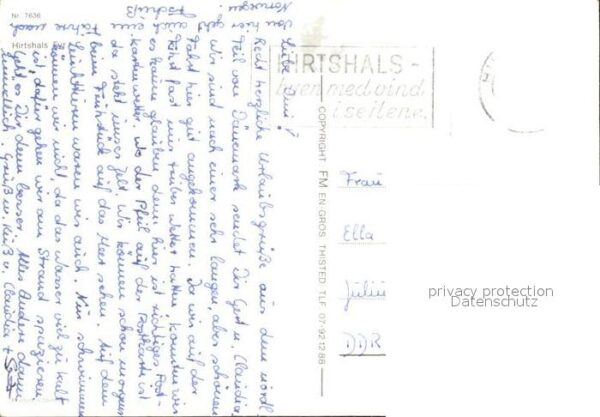 Nr. 7636
Hirtshals
HIRTSHALS -
byen med vind
i sejlene.
COPYRIGHT FM EN GROS THISTED TLF 07-921288
Frau
Ella
DDR
privacy protection
Datenschutz
Recht herzliche Urlaubsgrüße aus dem nördl.
Teil von Dänemark sendet Dir Gert u. Claudia,
wir sind nach einer sehr langen, aber schönen
Fahrt hier gut angekommen. Da wir auf der
Fahrt fast nur trübes Wetter hatten, konnten wir
es kaum glauben, denn hier ist richtiges Post-
kartenwetter. Wo der Pfeil auf der Postkarte ist
da steht unser Zelt. Wir können schon morgens
beim Frühstück auf das Meer sehen. Auf dem
Leuchtturm waren wir auch. Nur schwimmen
können wir nicht, da das Wasser viel zu kalt
ist, dafür gehen wir am Strand spazieren
Geht es Dir denn besser Alles Andere dann
mündlich. Gruß u. Kuß v. Claudia +